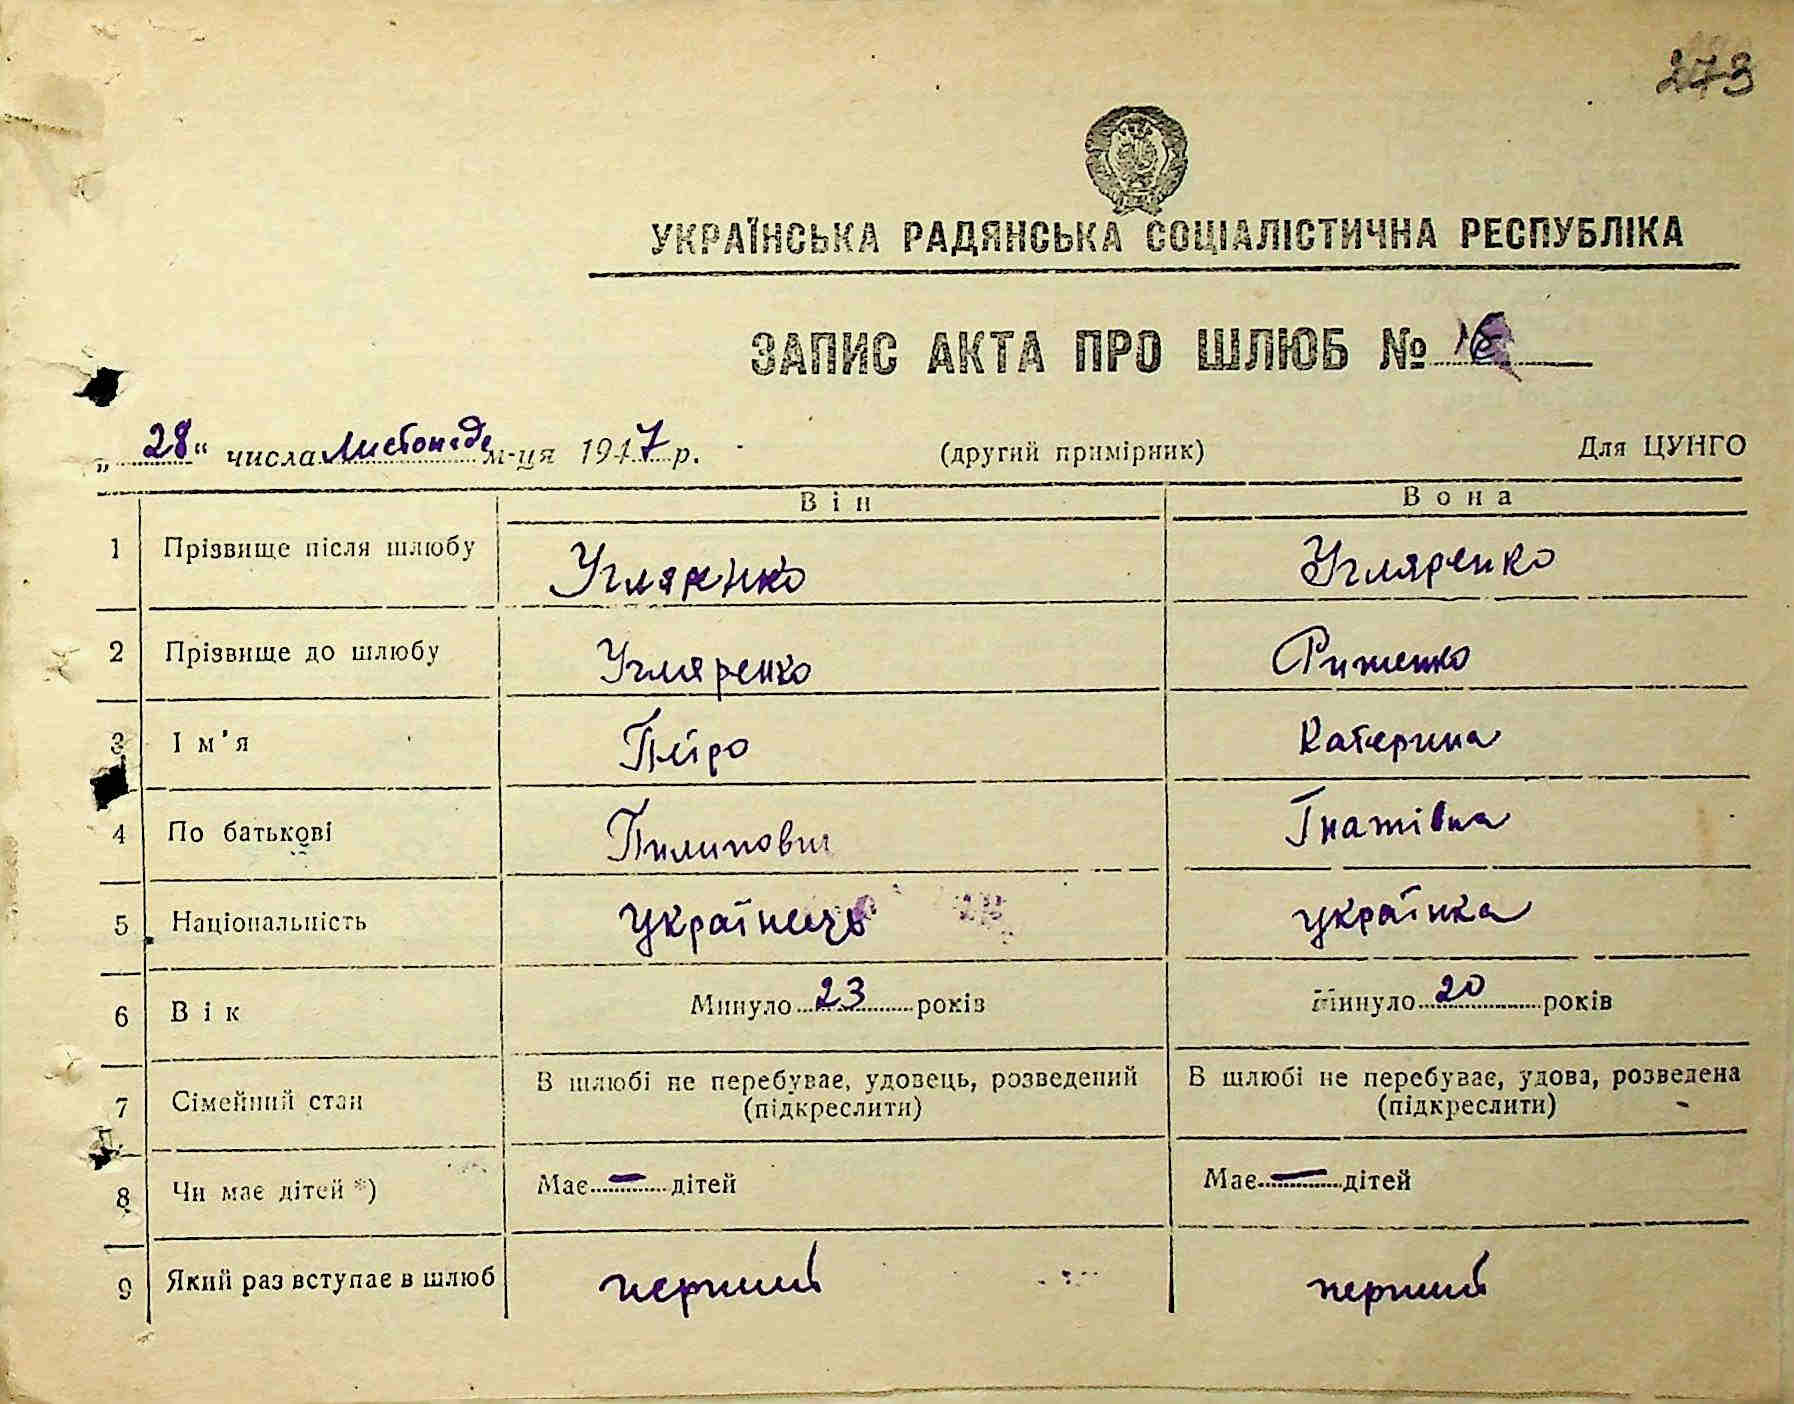 273
УКРАЇНСЬКА РАДЯНСЬКА СОЦІАЛІСТИЧНА РЕСПУБЛІКА
ЗАПИС АКТА ПРО ШЛЮБ №
„28“ числа Листопаде м-ця 1947 р. (другий примірник) Для ЦУНГО
Він Вона
1 Прізвище після шлюбу Угляренко Угляренко
2 Прізвище до шлюбу Угляренко Риженко
3 Ім'я Петро Катерина
4 По батькові Пилипович Гнатівна
5 Національність українець українка
6 Вік Минуло 23 років Минуло 20 років
7 Сімейний стан В шлюбі не перебуває, удовець, розведений В шлюбі не перебуває, удова, розведена
(підкреслити) (підкреслити)
8 Чи має дітей *) Має — дітей Має — дітей
9 Який раз вступає в шлюб перший перший